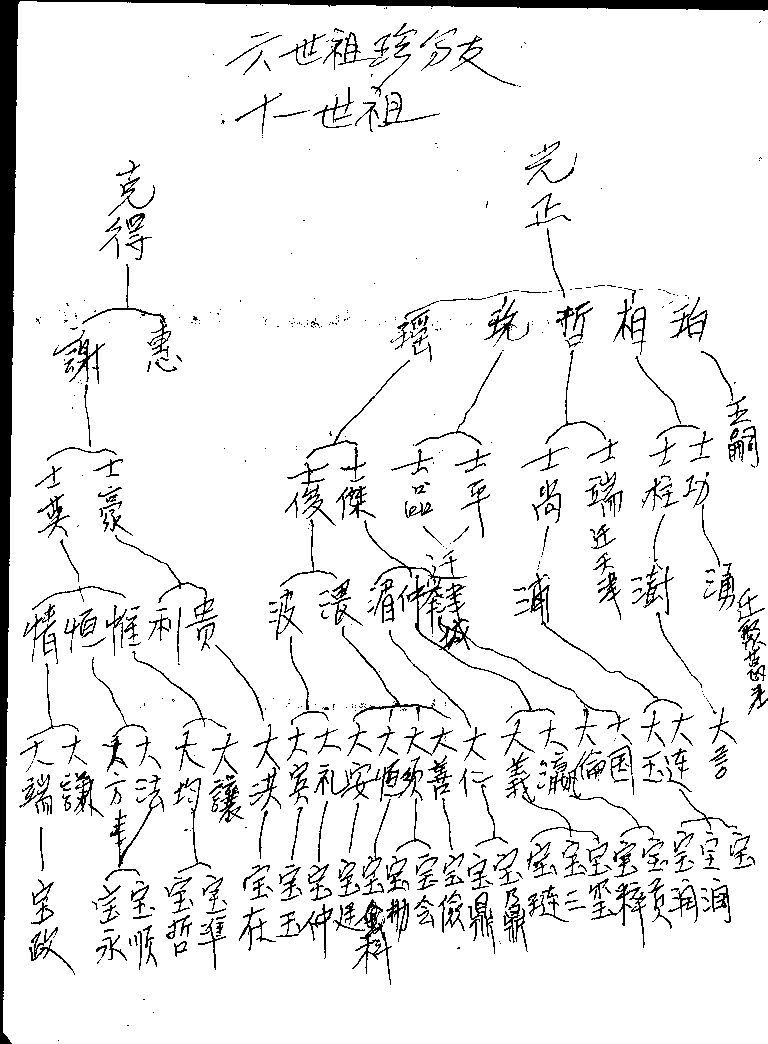 六世祖珍分支
十一世祖
克得 光正
謝 惠 瑶 珗 哲 相 珀
士英 士豪 士俊 士傑 士品 士平 士尚 士端 士栓 士功 王嗣
迁天津
迁津城
情 恒 惟 利 贵 波 渨 湄 仲 举 浦 澍 湧
大端 大謙 大方 大法 大均 大讓 大洪 大宾 大礼 大安 大恒 大须 大善 大仁 大義 大瀛 大倫 大国 大玉 大连 大言
宝政 宝永 宝順 宝哲 宝準 宝在 宝玉 宝仲 宝廷 宝科 宝勘 宝会 宝儉 宝鼎 宝鼐 宝琏 宝三 宝玺 宝粹 宝贡 宝润 宝润 宝